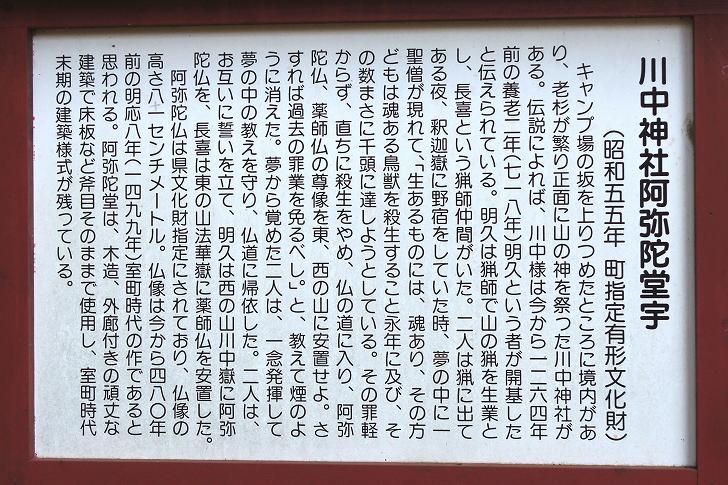 川中神社阿弥陀堂宇
(昭和五五年 町指定有形文化財)
キャンプ場の坂を上りつめたところに境内があ
り、老杉が繁り正面に山の神を祭った川中神社が
ある。伝説によれば、川中様は今から一二六四年
前の養老二年(七一八年)明久という者が開基した
と伝えられている。明久は猟師で山の猟を生業と
し、長喜という猟師仲間がいた。二人は猟に出て
ある夜、釈迦嶽に野宿をしていた時、夢の中に一
聖僧が現れて、「生あるものには、魂あり、その方
どもは魂ある鳥獣を殺生すること永年に及び、そ
の数まさに千頭に達しようとしている。その罪軽
からず、直ちに殺生をやめ、仏の道に入り、阿弥
陀仏、薬師仏の尊像を東、西の山に安置せよ。さ
すれば過去の罪業を免るべし」と、教えて煙のよ
うに消えた。夢から覚めた二人は、一念発揮して
夢の中の教えを守り、仏道に帰依した。二人は、
お互いに誓いを立て、明久は西の山川中嶽に阿弥
陀仏を、長喜は東の山法華嶽に薬師仏を安置した。
阿弥陀仏は県文化財指定にされており、仏像の
高さ八一センチメートル。仏像は今から四八〇年
前の明応八年(一四九九年)室町時代の作であると
思われる。阿弥陀堂は、木造、外廊付きの頑丈な
建築で床板など斧目そのままで使用し、室町時代
末期の建築様式が残っている。